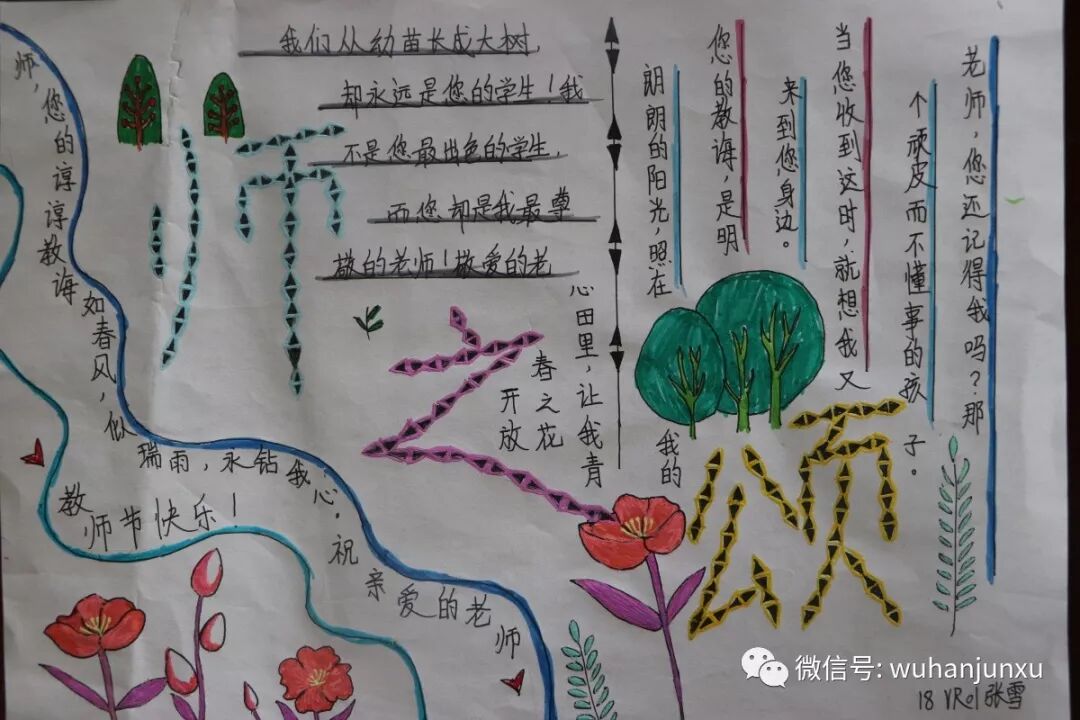 师之颂
老师,您还记得我吗?那
个顽皮而不懂事的孩
子。
当您收到这时,就想我又
来到您身边。
您的教诲,是明
朗朗的阳光,照在
我的
心田里,让我青
春之花
开放
我们从幼苗长成大树,
却永远是您的学生!我
不是您最出色的学生,
而您却是我最尊
敬的老师!敬爱的老
师,您的谆谆教诲如春风,似瑞雨,永钻我心。祝亲爱的老师
教师节快乐!
微信号: wuhanjunxu
18 VR01 张雪